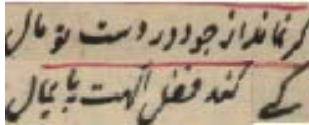 گر نماند از جود در دست تو مال
کے کند فضل الهت پایمال